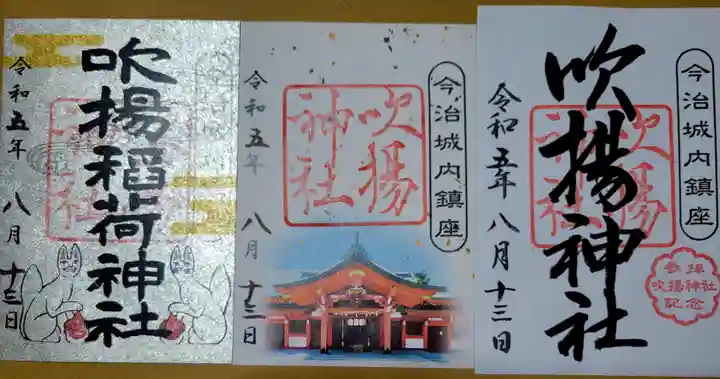 吹揚稲荷神社
令和五年 八月 十三日
今治城内鎮座
吹揚
神社
令和五年 八月 十三日
今治城内鎮座
吹揚神社
吹揚
神社
令和五年 八月 十三日
参拝
吹揚神社
記念